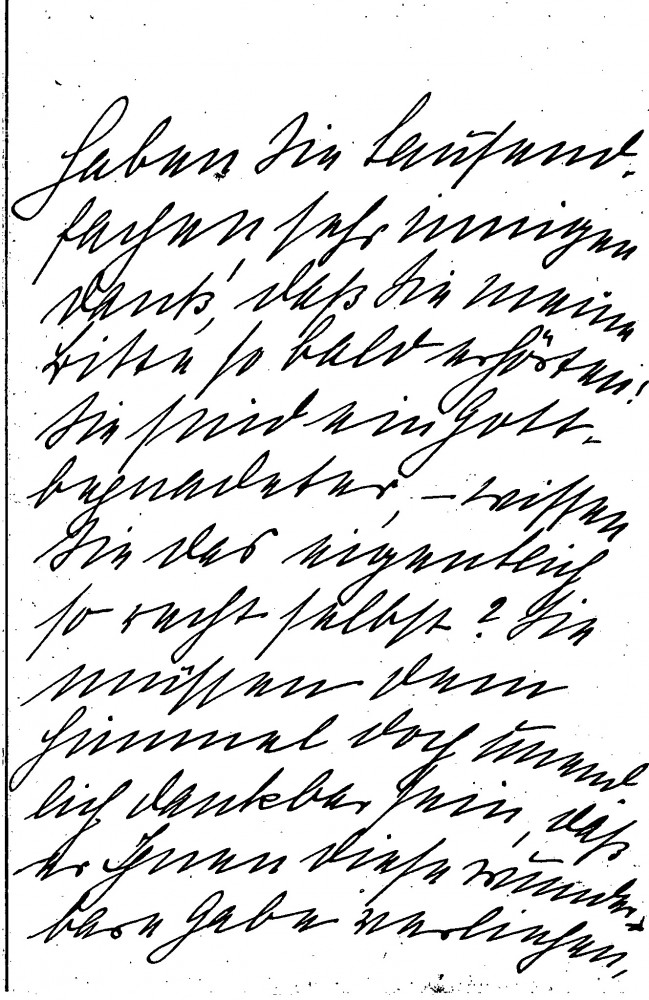 Haben Sie tausend-
fachen sehr innigen
Dank, daß Sie meine
Bitte so bald erhörten!
Sie sind ein Gott-
begnadeter, – wissen
Sie das eigentlich
so recht selbst? Sie
müssen dem
Himmel doch unend
lich dankbar sein, daß
er Ihnen diese wunder-
bare Gabe verliehen,